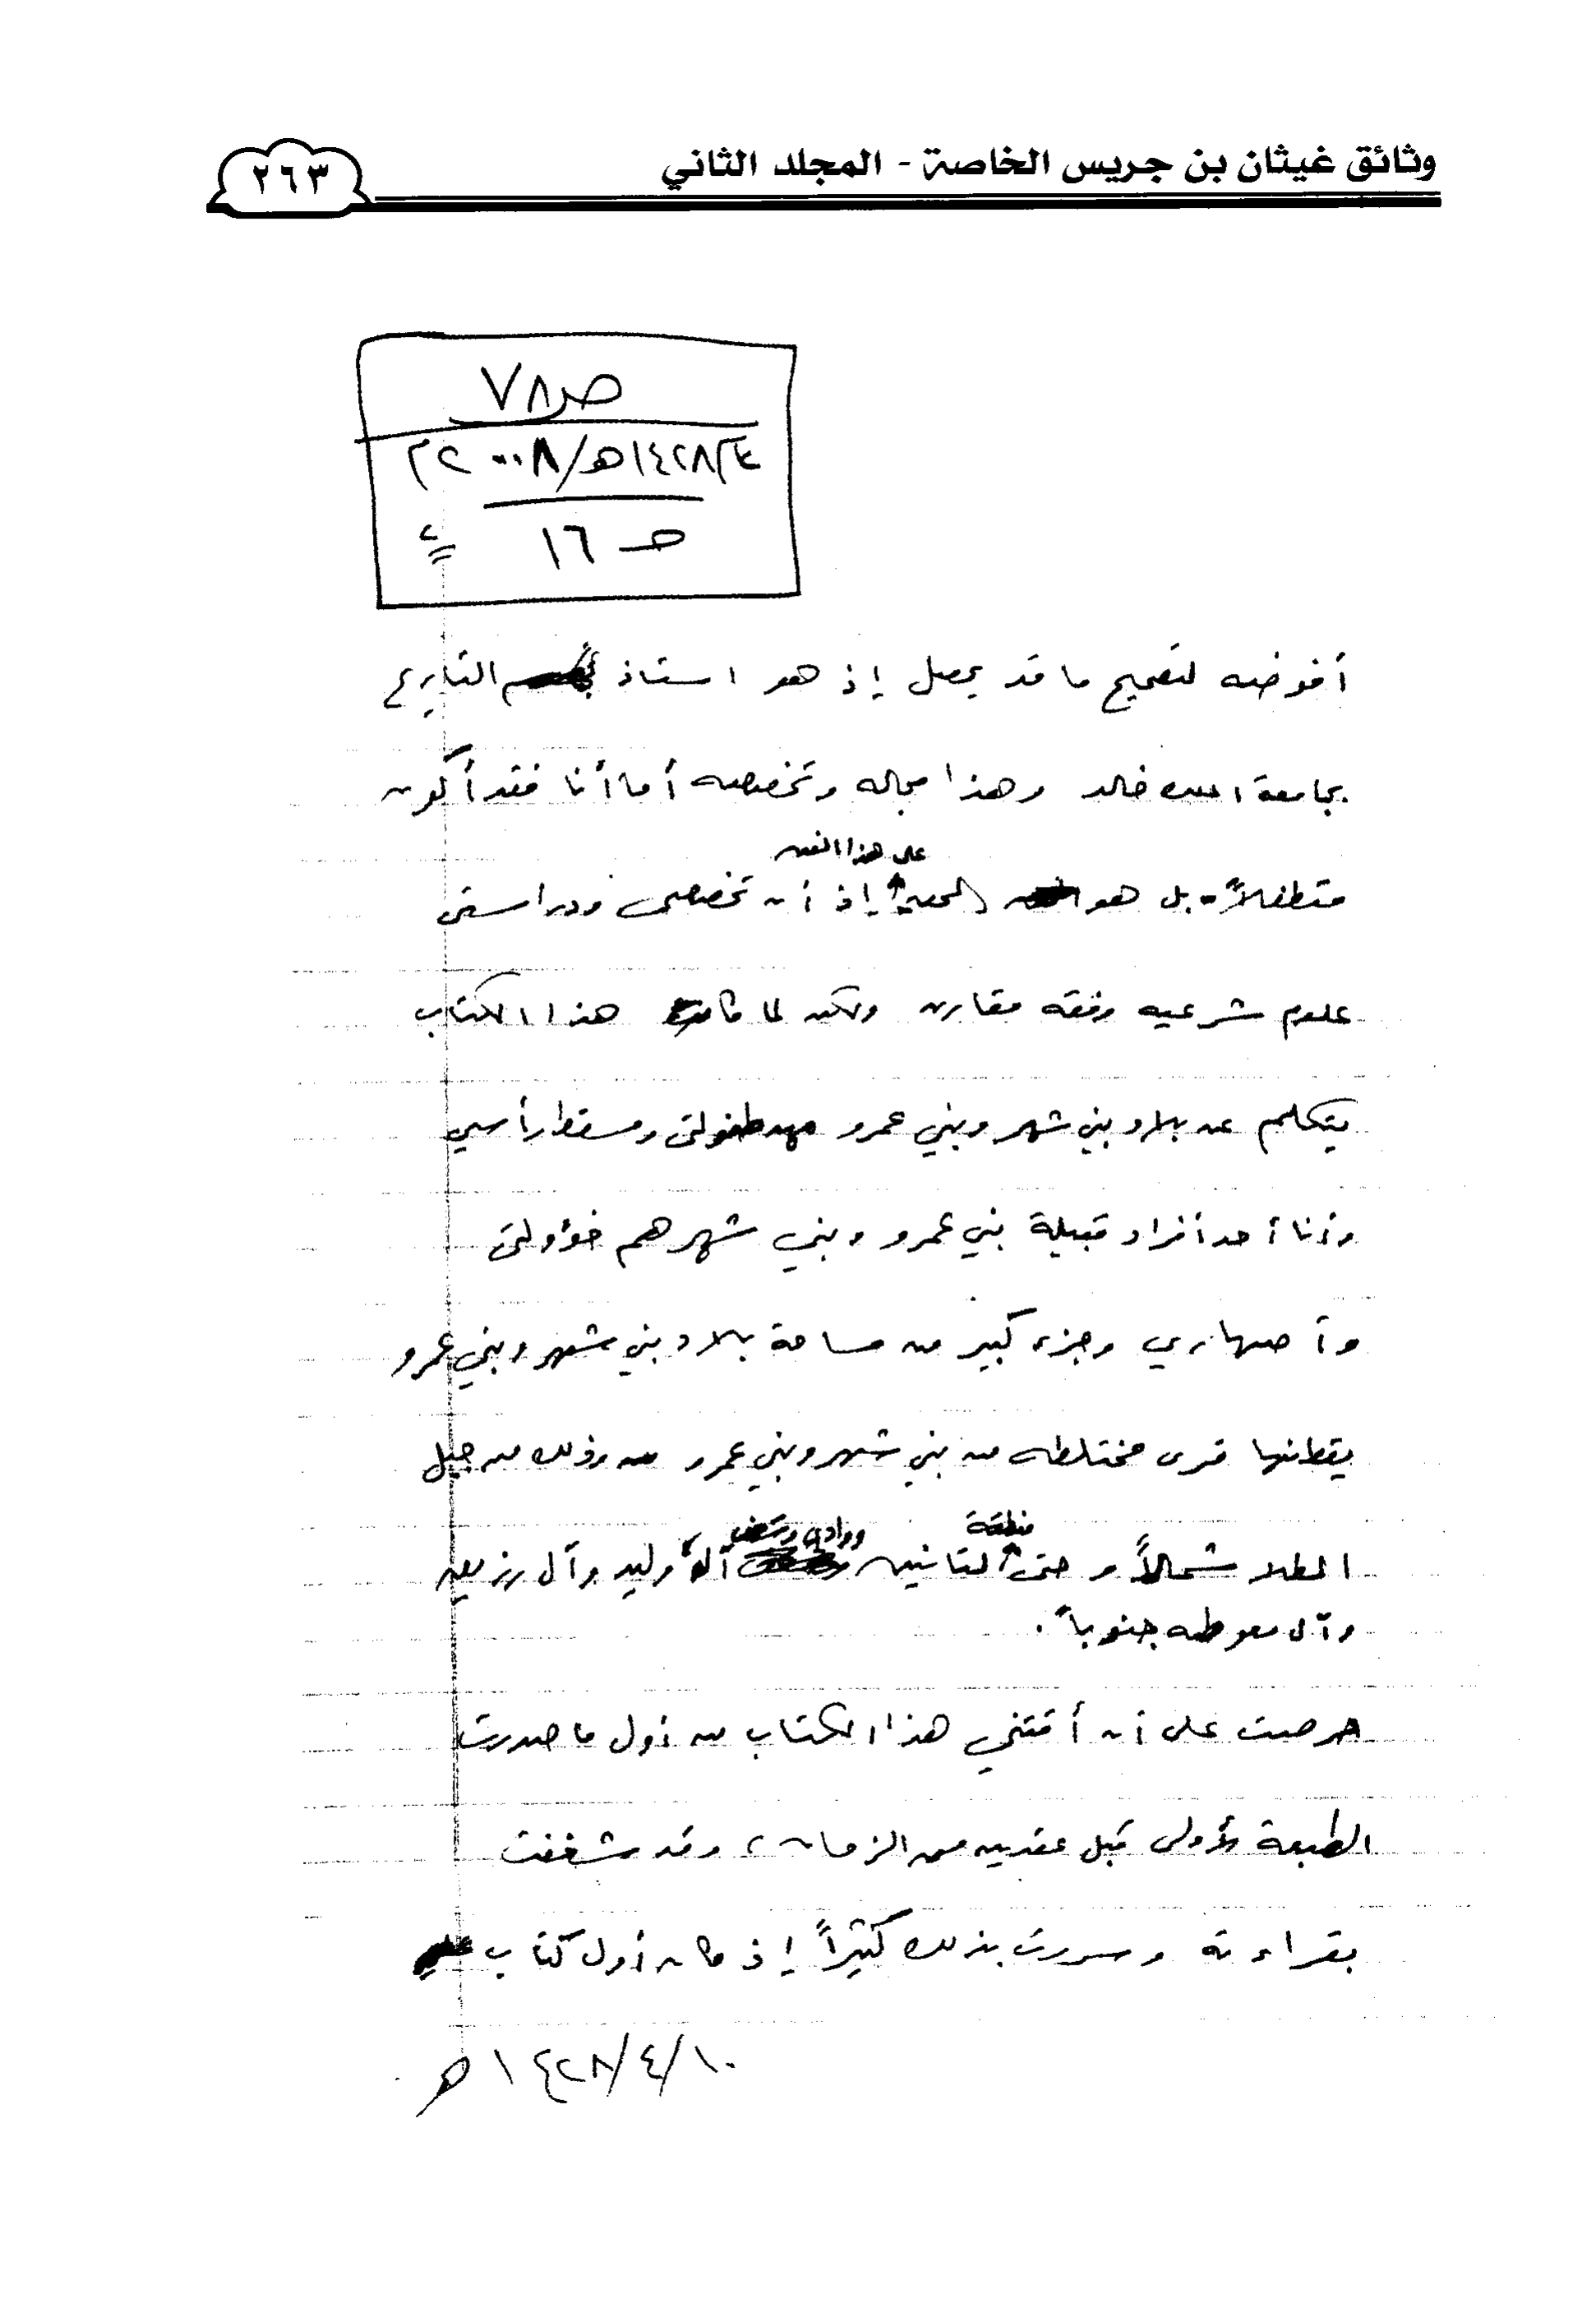 وثائق غيثان بن جريس الخاصة - المجلد الثاني
٢٦٣
ص ٧٨
١٤٢٨/٤هـ/٢٠٠٨م
حـ ١٦
أفوضه لتصحيح ما قد يحصل إذ هو استاذ التاريخ
بجامعة الملك خالد وهذا مجاله وتخصصه أما أنا فقد أكون
على هذا الفن
متطفلاً بل هو الحق إذ أن تخصصي ودراستي
علوم شرعيه وفقه مقارن ولكن لما كان هذا الكتاب
يتكلم عن بلاد بني شهر وبني عمرو مهد طفولتي ومسقط رأسي
وأنا أحد أفراد قبيلة بني عمرو وبني شهر هم خؤولتي
وأصهاري وجزء كبير من مساحة بلاد بني شهر وبني عمرو
يقطنها قرى مختلطه من بني شهر وبني عمرو وذلك من جبل
منطقة ووادي
المطلا شمالاً وحتى آل وليد وآل رزيق
وآل معوطه جنوباً.
حرصت على أن أقتني هذا الكتاب من أول ما صدرت
الطبعة الأولى قبل عقدين من الزمان، وقد شغفت
بقراءته وسررت بذلك كثيراً إذ كان أول كتاب
١٤٢٨/٤/١٠هـ